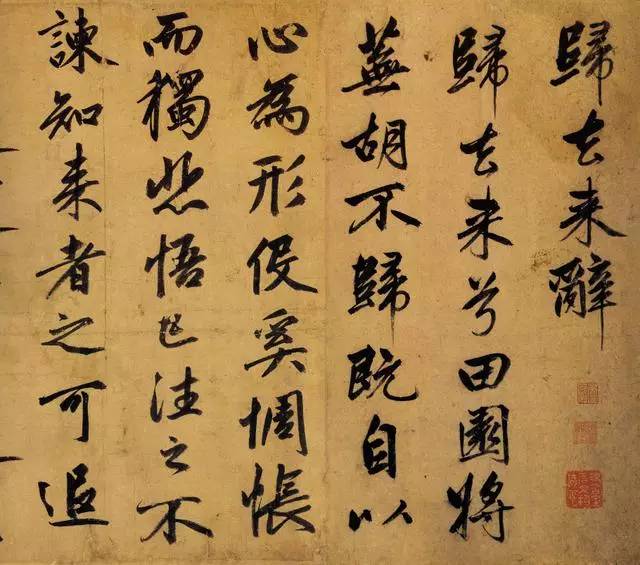 歸去来辭
歸去来兮田園将
蕪胡不歸既自以
心為形役奚惆悵
而獨悲悟已往之不
諫知来者之可追